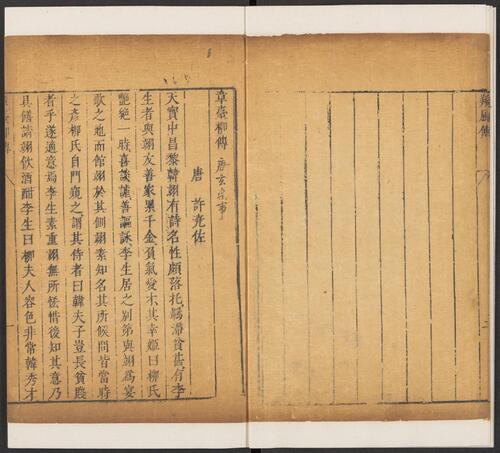 章臺柳傳 唐玄宗事
唐 許堯佐
天寶中昌黎韓翊有詩名性頗落托羈滯貧甚有李
生者與翊友善家累千金負氣愛才其幸姬曰柳氏
艷絕一時喜談謔善謳詠李生居之別第與翊爲宴
歌之地而館翊於其側翊素知名其所候問皆當時
之彥柳氏自門窺之謂其侍者曰韓夫子豈長貧賤
者乎遂適意焉李生素重翊無所恡惜後知其意乃
具饍請翊飲酒酣李生曰柳夫人容色非常韓秀才
章臺柳傳